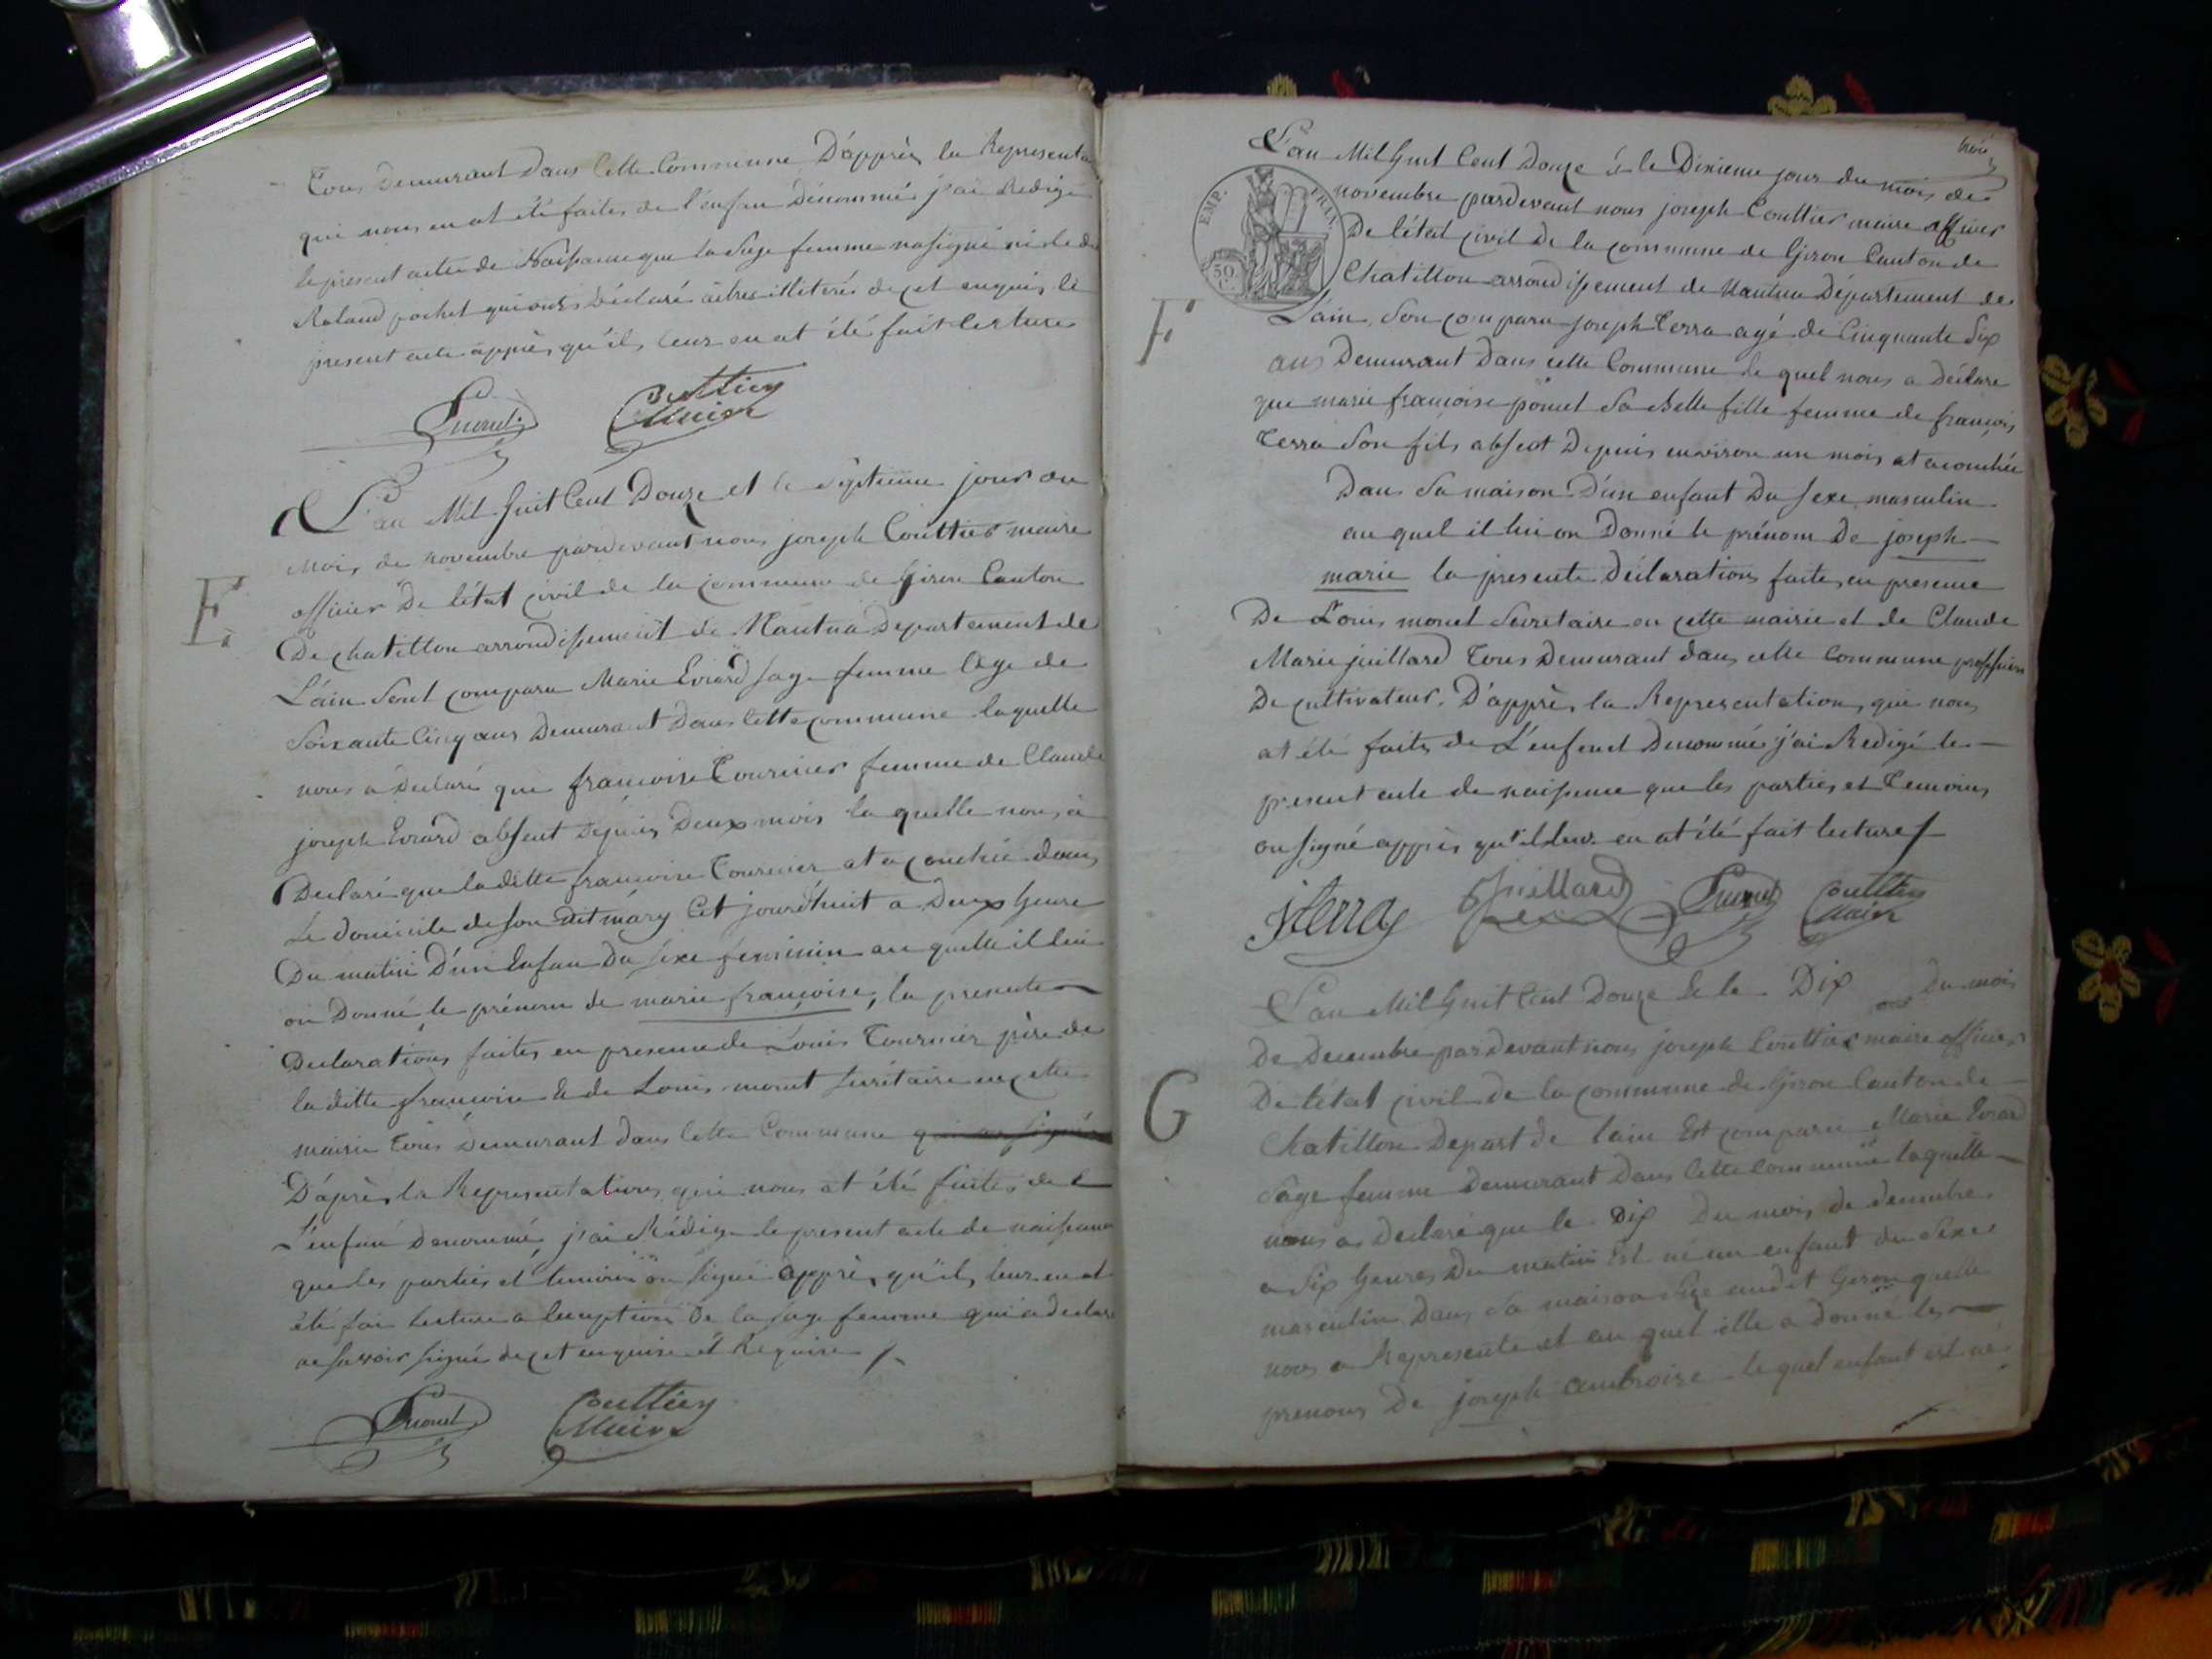 Tous Demurant Dans Cette Commune D'apprès la Representa
qui nous en at été faites de l'enfan Dénommé j'ai Redigé
le present acte de Naissance que la Sage femme na signé ni le dit
Roland pochet qui ons Déclaré aitres illiterés de cet enquis le
present acte apprès qu'il leur en at été fait lecture
Lmonet Couttier
Maire
L'an Mil huit Cent Douze et le Septieme jour du
Mois de novembre pardevant nous joseph Couttier maire
officier De l'état civil de la commune de Giron Canton
De chatillon arrondissement de Nantua Departement de
L'ain Sont comparu Marie Evrard sage femme Agé de
Soixante Cinq ans Demurant Dans Cette commune laquelle
nous a declaré que francoise Tournier femme de Claude
joseph Evrard absent Depuis Deux mois la quelle nous à
Declaré que la ditte francoise Tournier at a couchée dans
Le domicile de son dit mary Cet jourd'huit a Deux heure
Du matin D'un Enfan Du sexe feminin au quelle il lui
on Donné le prénom de marie francoise, la presente
Declarations faites en presence de Louis Tournier père de
la ditte francoise & de Louis monet secrétaire en cette
mairie Tous Demurant dans Cette Commune qui on signés
D'après la Representations qui nous at été faites de
L'enfan Denommé j'ai Rédigé le present acte de naissance
que les parties et temoins on signé apprès qu'il leur en at
été fai lecture a l'exeption De la sage femme qui a declaré
ne savoir signé de cet enquise et Requise
Lmonet Couttier
Maire
E
trois
L'an Mil huit Cent Douze & le Dixieme jour du mois de
novembre pardevant nous joseph Couttier maire officier
De l'état civil De la commune de Giron Canton de
Chatillon arrondissement de Nantua Département de
L'ain, Son comparu joseph Terra agé de Cinquante Six
ans Demurant Dans cette Commune le quel nous a Déclaré
que marie francoise poncet Sa Belle fille femme de françois
Terra Son fils absent Depuis environ un mois at acouchée
Dans Sa maison D'un enfant Du sexe masculin
au quel il lui on Donné le prénom De joseph
marie la presente Déclarations faites en presence
De Louis monet Secretaire en cette mairie et de Claude
Marie juillard Tous Demurant dans cette Commune proffession
De cultivateur. D'apprès la Representation, que nous
at été faites de L'enfent Denommé j'ai Redigé le
present acte de naissance que les parties et Temoins
on signé apprès qu'il leur en at été fait lecture
JTerra Juillard Lmonet Couttier
Maire
EMP. FRAN.
50 C.
F
L'an Mil huit Cent Douze & le Dix du mois
De Decembre pardevant nous joseph Couttier maire officier
De l'état civil de la commune de Giron Canton de
Chatillon Depart de lain Est comparu Marie Evrard
Sage femme Demurant Dans Cette Commune laquelle
nous a Declaré que le Dix Du mois de decembre
a Six heures Du matin Est né un enfant du Sexe
masculin Dans Sa maison audit Giron quelle
nous a Représenté et au quel elle a donné les
prenoms De joseph ambroise le quel enfant est né
G